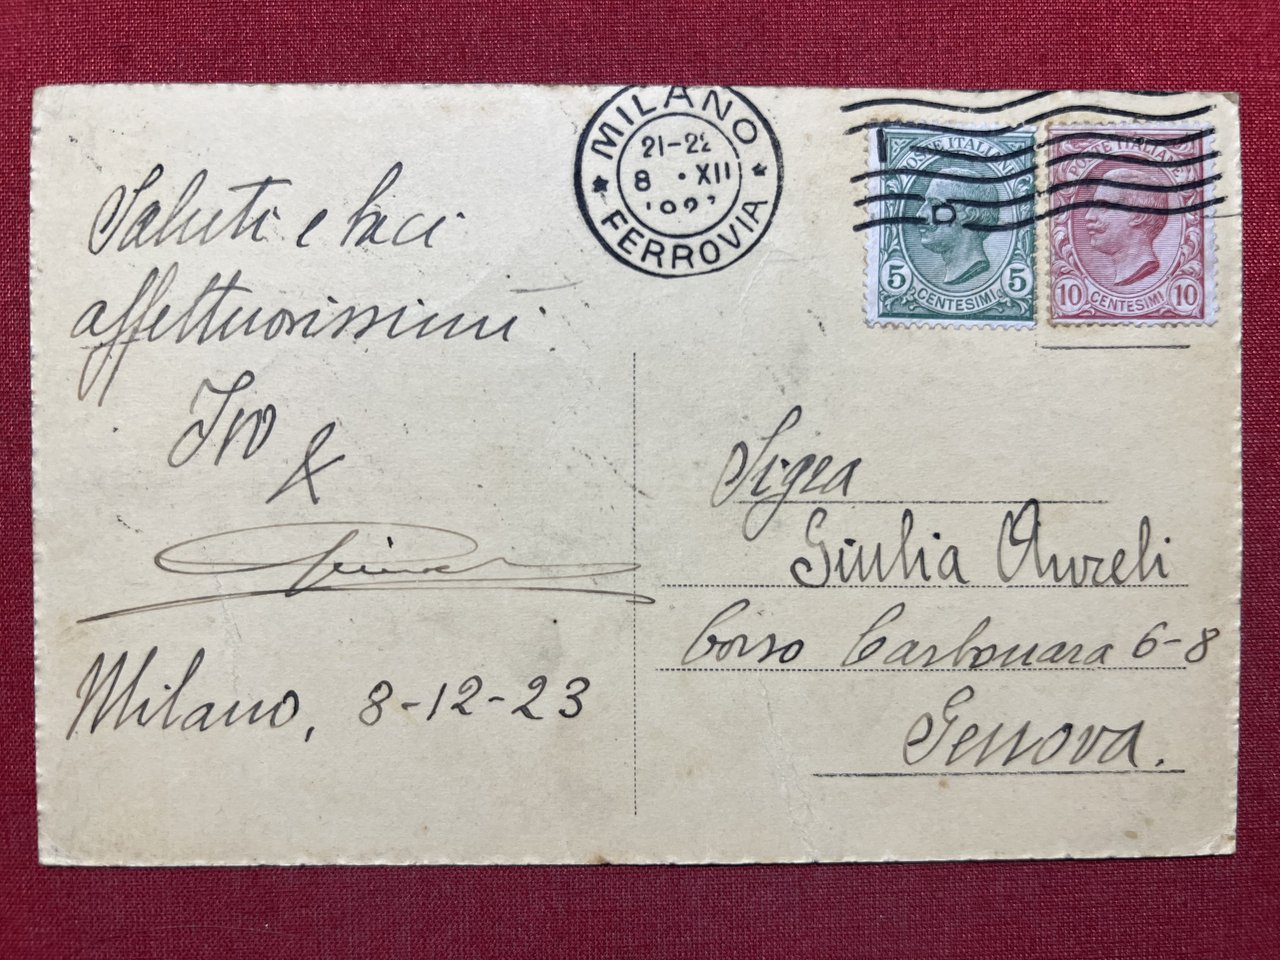 Saluti e baci
affettuosissimi
Ivo
&
Milano, 8-12-23
MILANO
21-22
8 · XII
FERROVIA
POSTE ITALIANE
5 CENTESIMI 5
POSTE ITALIANE
10 CENTESIMI 10
Sigra
Giulia Aureli
Corso Carbonara 6-8
Genova.